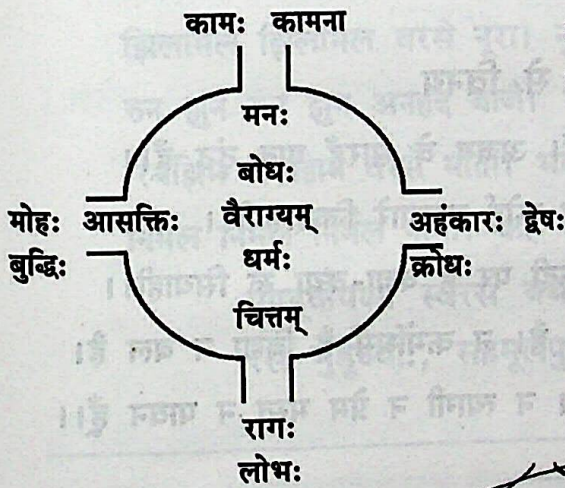 कामः कामना
मनः
बोधः
मोहः आसक्तिः वैराग्यम् अहंकारः द्वेषः
बुद्धिः धर्मः क्रोधः
चित्तम्
रागः
लोभः